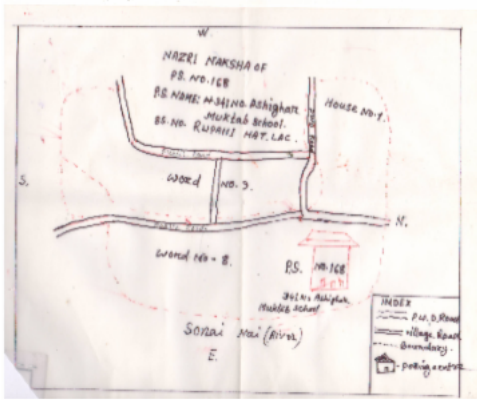 W.
NAZRI NAKSHA OF
P.S. NO. 168
P.S. NAME: N 341 NO. Ashighar
Muktab School.
NO. RUPAHI HAT. LAC.
House No. 1.
word NO. 3.
S.
N.
word No - 8.
P.S. NO. 168
Sch
341 No Ashighar
Muktab School
Sonai Nai (River)
E.
INDEX
P.W.D. Road
village Road
Boundary.